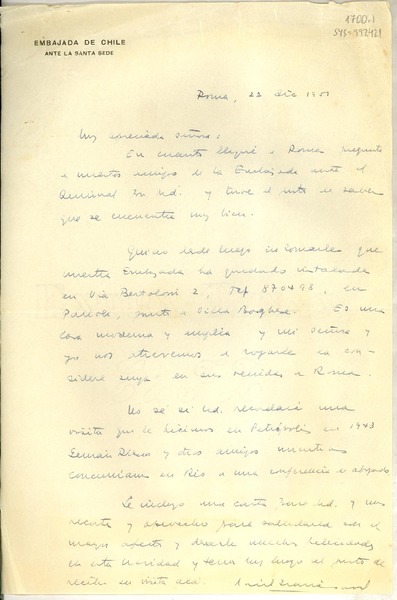 1700.1
EMBAJADA DE CHILE
ANTE LA SANTA SEDE
Roma, 22 dic 1951
Muy apreciada señora:
En cuanto llegué a Roma pregunté
a nuestros amigos de la Embajada ante el
Quirinal por Ud. y tuve el gusto de saber
que se encuentra muy bien.
Quiero desde luego informarle que
nuestra Embajada ha quedado instalada
en Via Bertoloni 2, Telf 870498, en
Parioli, junto a Villa Borghese. Es una
casa moderna y amplia y mi señora y
yo nos atrevemos a rogarle la con-
sidere suya en sus venidas a Roma.
No sé si Ud. recordará una
visita que le hicimos en Petrópolis en 1943
Germán y otros amigos mientras
en Río a una conferencia de abogados
Le incluyo una carta para Ud. y un
recorte y aprovecho para saludarla con el
mayor afecto y desearle muchas felicidades
en esta Navidad y tener luego el gusto de
recibir su visita acá.